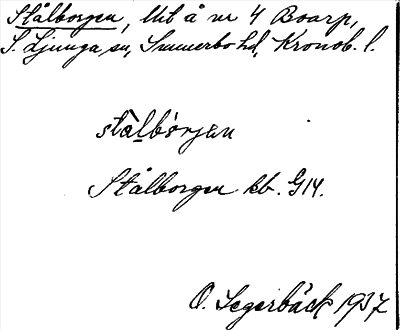 Stålborgen, Utb å nr 4 Boarp,
S. Ljunga sn, Sunnerbo hd, Kronob. l.
stålbòrjən
Stålborgen kb. G14.
O. Segerbäck 1937